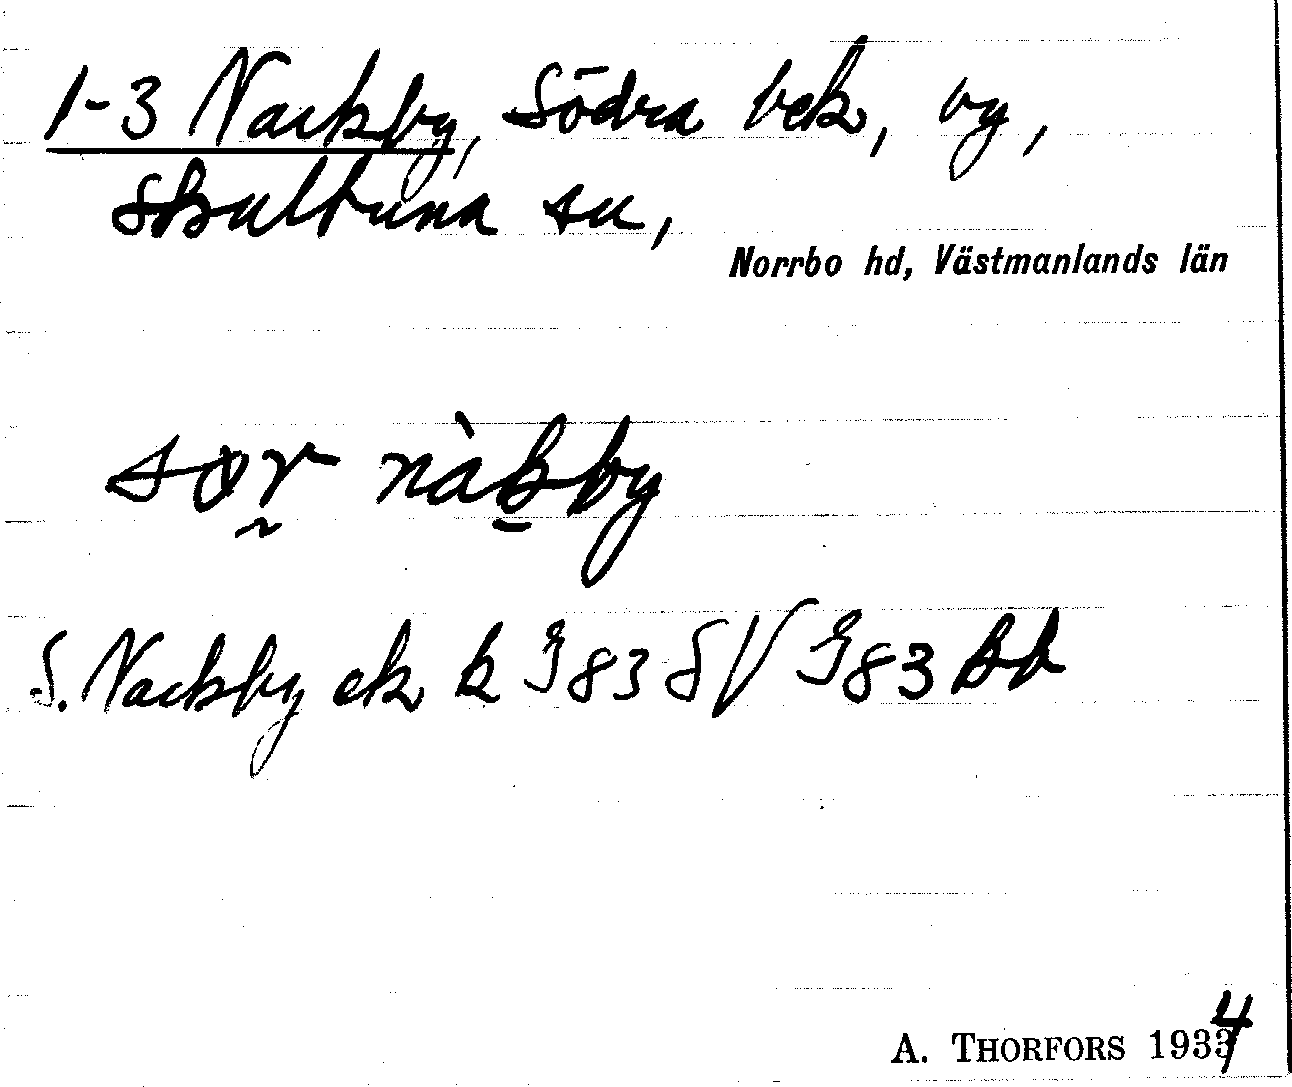 1-3 Nackby, Södra bek, by,
Skultuna sn,
Norrbo hd, Västmanlands län
sør nàkby
S. Nackby ek k J 83 SV J 83
A. THORFORS 1934